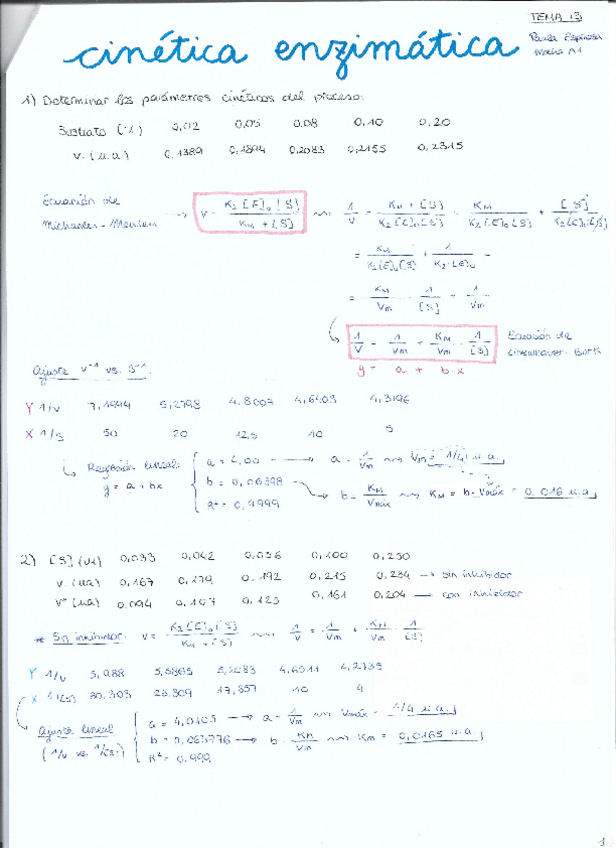 TEMA 13
cinética enzimática
Paula Espinosa
1) Determinar los parámetros cinéticos del proceso:
Sustrato (M) 0,02 0,05 0,08 0,10 0,20
V (u.a) 0,1389 0,1894 0,2083 0,2155 0,2315
Ecuación de
Michaelis-Menten → V = K2[E]0[S] / (KM + [S]) ⟿ 1/V = (KM + [S]) / (K2[E]0[S]) = KM / (K2[E]0[S]) + [S] / (K2[E]0[S])
= KM / (K2[E]0[S]) + 1 / (K2[E]0) =
= KM/Vm · 1/[S] + 1/Vm
1/V = 1/Vm + KM/Vm · 1/[S] Ecuación de Lineweaver-Burk
y = a + b·x
Ajuste V⁻¹ vs. S⁻¹
Y 1/V 7,1994 5,2798 4,8007 4,6403 4,3196
X 1/S 50 20 12,5 10 5
Regresión lineal: a = 4,00 → a = 1/Vm ⟿ Vm = 1/4 u.a.
y = a + bx b = 0,06398 → b = KM/Vmáx ⟿ KM = b · Vmáx = 0,016 u.a.
r² = 0,9999
2) [S] (M) 0,033 0,042 0,056 0,100 0,250
V (ua) 0,167 0,179 0,192 0,215 0,234 → sin inhibidor
V' (ua) 0,094 0,107 0,125 0,161 0,204 → con inhibidor
* Sin inhibidor: V = K2[E]0[S] / (KM + [S]) ⟿ 1/V = 1/Vm + KM/Vm · 1/[S]
Y 1/V 5,988 5,5865 5,2083 4,6511 4,2735
X 1/[S] 30,303 23,809 17,857 10 4
Ajuste lineal a = 4,0105 → a = 1/Vm ⟿ Vmáx = 1/4 u.a.
(1/V vs. 1/[S]) b = 0,065776 → b = KM/Vm ⟿ KM = 0,0165 u.a
R² = 0,999
1